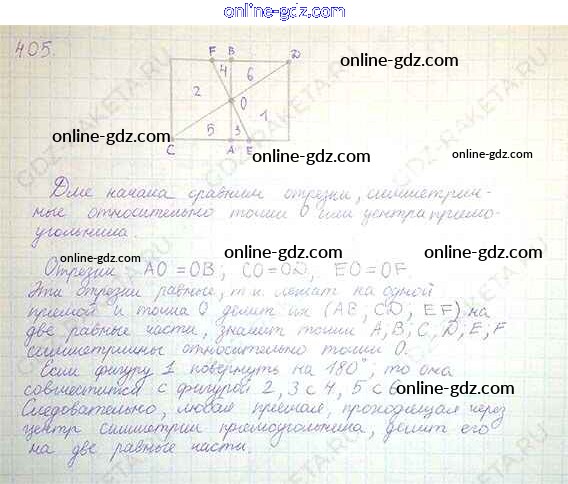 online-gdz.com
405.
F B D
4 6
2 O
1
5 3
C A E
Для начала сравним отрезки, симметрич-
ные относительно точки О или центра прямо-
угольника.
Отрезки AO = OB; CO = OD, EO = OF.
Эти отрезки равные, т.к. лежат на одной
прямой и точка О делит их (AB, CD, EF) на
две равные части, значит точки A, B, C, D, E, F
симметричны относительно точки О.
Если фигуру 1 повернуть на 180°, то она
совместится с фигурой 2, 3 с 4, 5 с 6
Следовательно, любая прямая, проходящая через
центр симметрии прямоугольника, делит его
на две равные части.
online-gdz.com
online-gdz.com
online-gdz.com
online-gdz.com
online-gdz.com
online-gdz.com
online-gdz.com
online-gdz.com
online-gdz.com
online-gdz.com
GDZ-RAKETA.RU